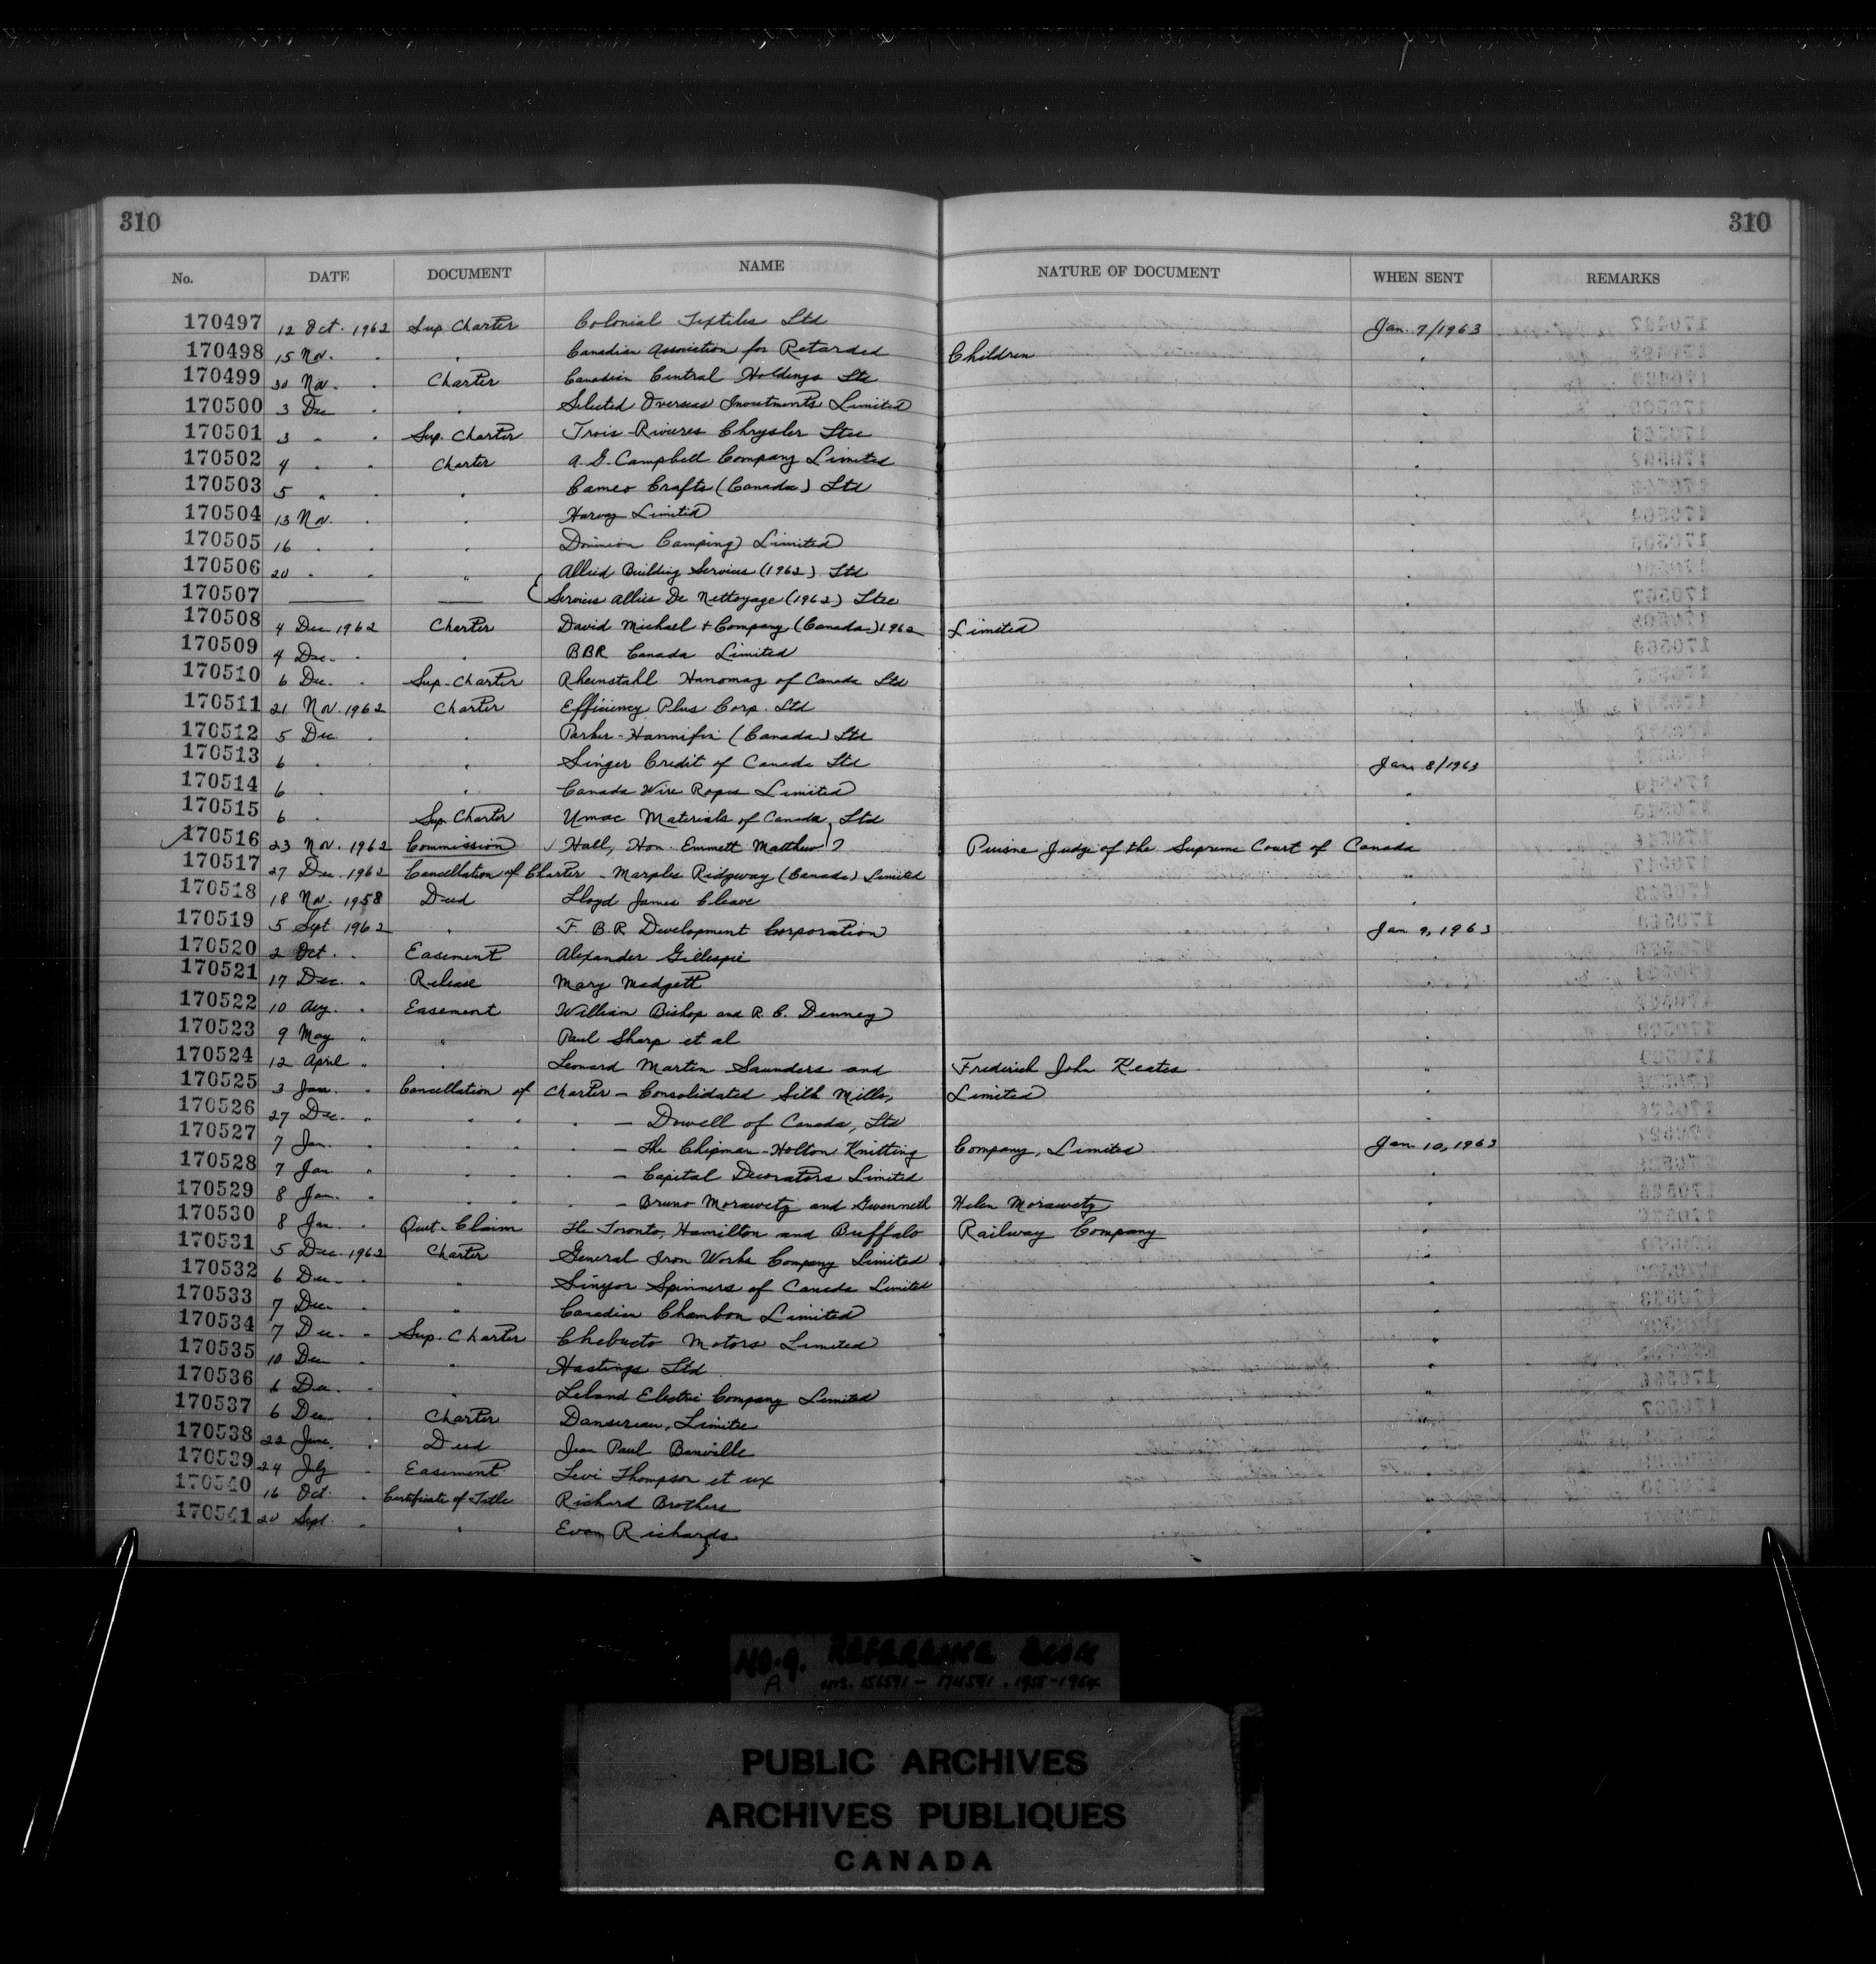 310 310
No. DATE DOCUMENT NAME NATURE OF DOCUMENT WHEN SENT REMARKS
170497 12 Oct. 1962 Sup Charter Colonial Textiles Ltd Jan. 7/1963
170498 15 Nov. " " Canadian Association for Retarded Children "
170499 30 Nov. " Charter Canadian Central Holdings Ltd "
170500 3 Dec " " Selected Overseas Investments Limited "
170501 3 " " Sup. Charter Trois-Rivieres Chrysler Ltee "
170502 4 " " Charter A. G. Campbell Company Limited "
170503 5 " " " Cameo Crafts (Canada) Ltd "
170504 13 Nov. " " Limited "
170505 16 " " " Dominion Camping Limited "
170506 20 " " " Allied Building Services (1962) Ltd "
170507 — — Services Allies De Nettoyage (1962) Ltee "
170508 4 Dec 1962 Charter David Michael + Company (Canada) 1962 Limited "
170509 4 Dec. " " BBR Canada Limited "
170510 6 Dec. " Sup. Charter Rheinstahl Hanomag of Canada Ltd "
170511 21 Nov. 1962 Charter Efficiency Plus Corp. Ltd "
170512 5 Dec " " Parker-Hannifin (Canada) Ltd "
170513 6 " " Singer Credit of Canada Ltd Jan 8/1963
170514 6 " " Canada Wire Ropes Limited "
170515 6 " Sup. Charter Umac Materials of Canada, Ltd "
170516 23 Nov. 1962 Commission √ Hall, Hon. Emmett Matthew Puisne Judge of the Supreme Court of Canada "
170517 27 Dec. 1962 Cancellation of Charter - Marples Ridgway (Canada) Limited "
170518 18 Nov. 1958 Deed Lloyd James Cleave "
170519 5 Sept 1962 " F. B. R Development Corporation Jan 9, 1963
170520 2 Oct. " Easement Alexander Gillespie
170521 17 Dec. " Release Mary Madgett "
170522 10 Aug. " Easement William Bishop and R. C. Denney "
170523 9 May " " Paul Sharp et al "
170524 12 April " " Leonard Martin Saunders and Frederick John Keates "
170525 3 Jan. " Cancellation of Charter - Consolidated Silk Mills, Limited "
170526 27 Dec. " " " " - Dowell of Canada, Ltd
170527 7 Jan. " " " " - The Chipman-Holton Knitting Company, Limited Jan. 10, 1963
170528 7 Jan " " " " - Capital Decorators Limited
170529 8 Jan. " " " " - Bruno Morawetz and Gwenneth Helen Morawetz "
170530 8 Jan. " Quit-Claim The Toronto, Hamilton and Buffalo Railway Company "
170531 5 Dec. 1962 Charter General Iron Works Company Limited "
170532 6 Dec. " " Spinners of Canada Limited "
170533 7 Dec. " " Canadian Chambon Limited "
170534 7 Dec. " Sup. Charter Chebucto Motors Limited "
170535 10 Dec " Hastings Ltd "
170536 6 Dec. " " Leland Electric Company Limited "
170537 6 Dec " Charter Dansereau, Limitee "
170538 22 June. " Deed Jean Paul Banville "
170539 24 July " Easement Levi Thompson et ux "
170540 16 Oct. " Certificate of Title Richard Brothers "
170541 20 Sept. " " Evan Richards "
NO. 9. REFERENCE BOOK
A NOS. 156591 - 174591. 1955-1964
PUBLIC ARCHIVES
ARCHIVES PUBLIQUES
CANADA